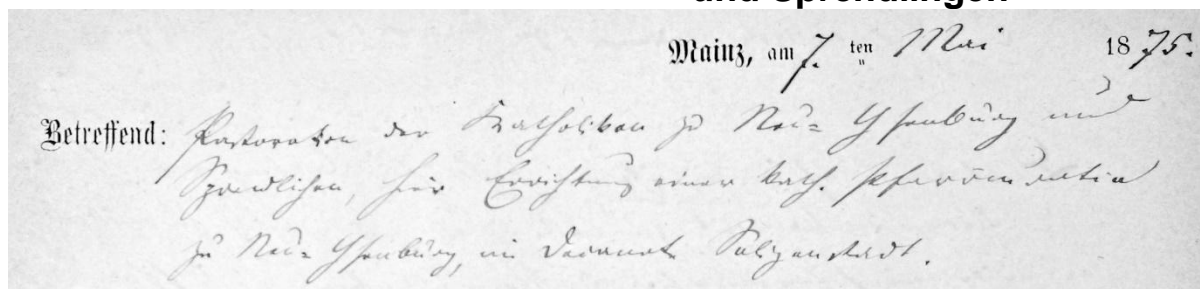 und Sprendlingen
Mainz, am 7. ten Mai 1875.
Betreffend: Pastoration der Katholiken zu Neu= Ysenburg und
Sprendlingen, hier Errichtung einer kath. Pfarrcuratie
zu Neu= Ysenburg, im Decanate Seligenstadt.